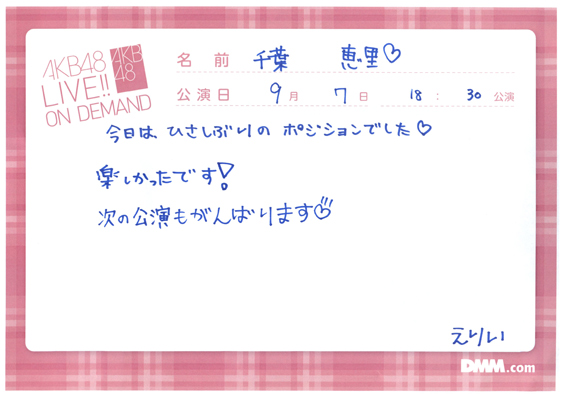 AKB48
LIVE!!
ON DEMAND
AKB
48
名前 千葉 恵里♡
公演日 9月 7日 18:30 公演
今日は、ひさしぶりの ポジションでした♡
楽しかったです!
次の公演もがんばります♡
えりい
DMM.com